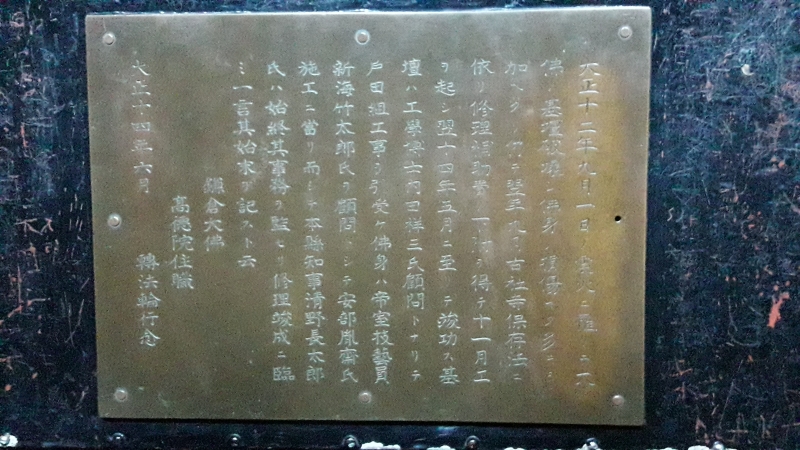 大正十二年九月一日ノ震災ニ罹ニ大
佛ノ基壇破壊シ佛身ノ損傷
加ヘタリ仍ニ翌年九月古社寺保存法ニ
依リ修理補助費ヲ得テ十一月工
ヲ起シ翌十四年五月ニ至テ竣功ス基
壇ハ工學博士内田祥三氏顧問トナリテ
戸田組工事ヲ引受ケ佛身ハ帝室技藝員
新海竹太郎氏ヲ顧問トシテ安部胤齊氏
施工ニ當リ而シテ本縣知事清野長太郎
氏ハ始終其事務ヲ監セリ修理竣成ニ臨
ミ一言其始末ヲ記スト云
鎌倉大佛
高徳院住職
轉法輪行念
大正十四年六月